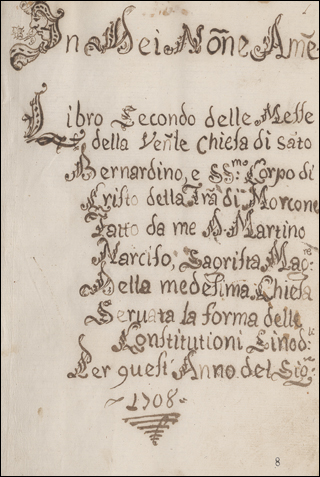 In Dei Nõne Amẽ
Libro Secondo delle Messe
della Ven̄le Chiesa di Sãto
Bernardino, e SS.mo Corpo di
Cristo della Trã di Morcone
Fatto da me D. Martino
Narciso, Sagrista Mag.re
Della medesima Chiesa
Seruata la forma delle
Constitutioni Sinod.li
Per questi Anno del Sig.re
~1708~
8